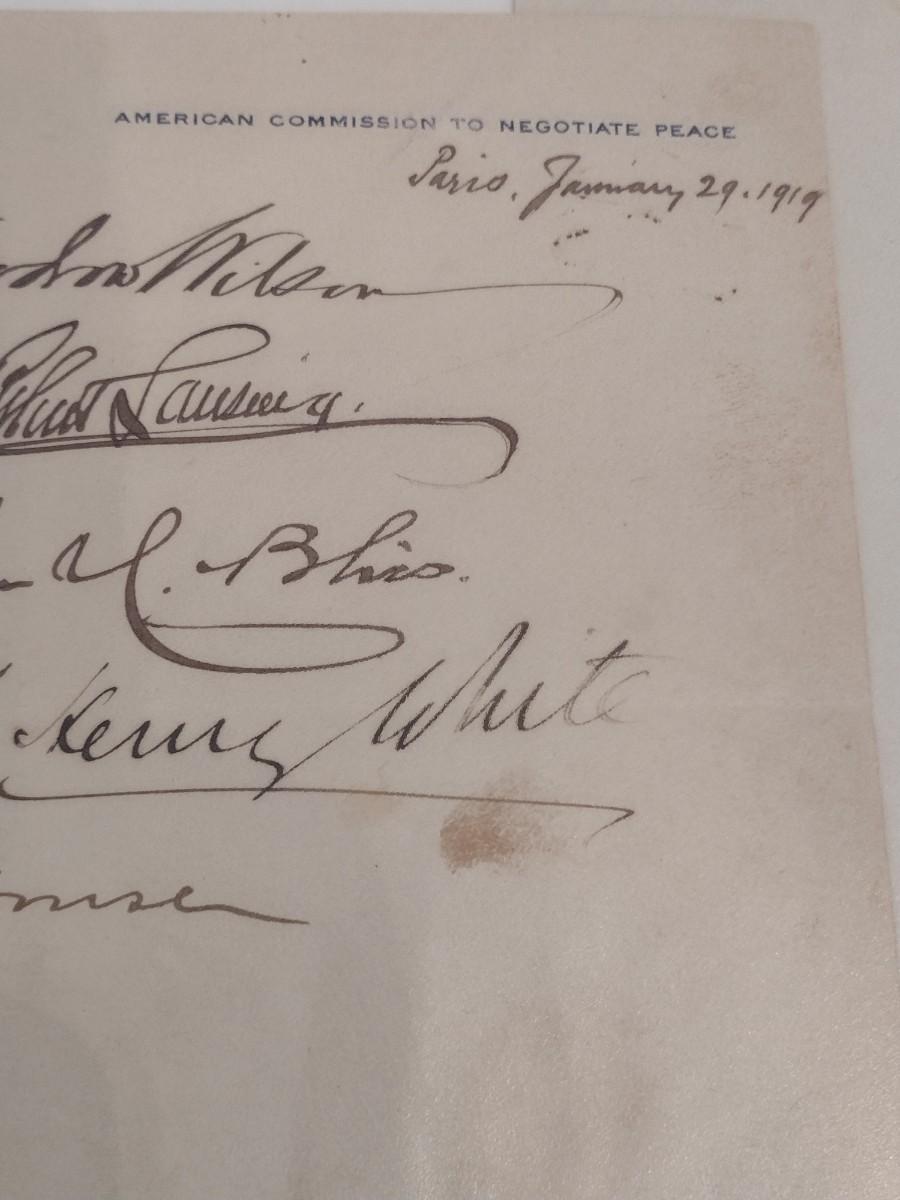 AMERICAN COMMISSION TO NEGOTIATE PEACE
Paris, January 29. 1919
odrow Wilson
Robert Lansing.
H. Bliss.
Henry White
House